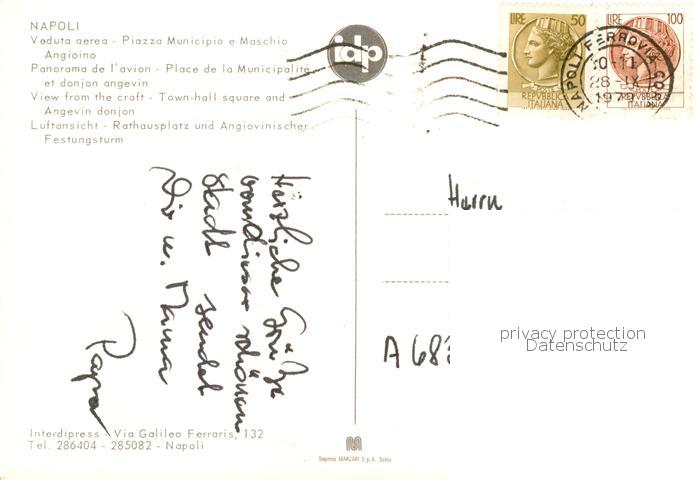 NAPOLI
Veduta aerea - Piazza Municipio e Maschio
Angioino
Panorama de l'avion - Place de la Municipalite
et donjon angevin
View from the craft - Town-hall square and
Angevin donjon
Luftansicht - Rathausplatz und Angiovinischer
Festungsturm
idp
LIRE 50
REPVBBLICA
ITALIANA
LIRE 100
REPVBBLICA
ITALIANA
NAPOLI FERROVIA
28-IX
Herzliche Grüße
von dieser schönen
Stadt sendet
Dir u. Mama
Papa
Herrn
A 683
privacy protection
Datenschutz
Interdipress - Via Galileo Ferraris, 132
Tel. 286404 - 285082 - Napoli
Saproma MANZARI S.p.A. Schio